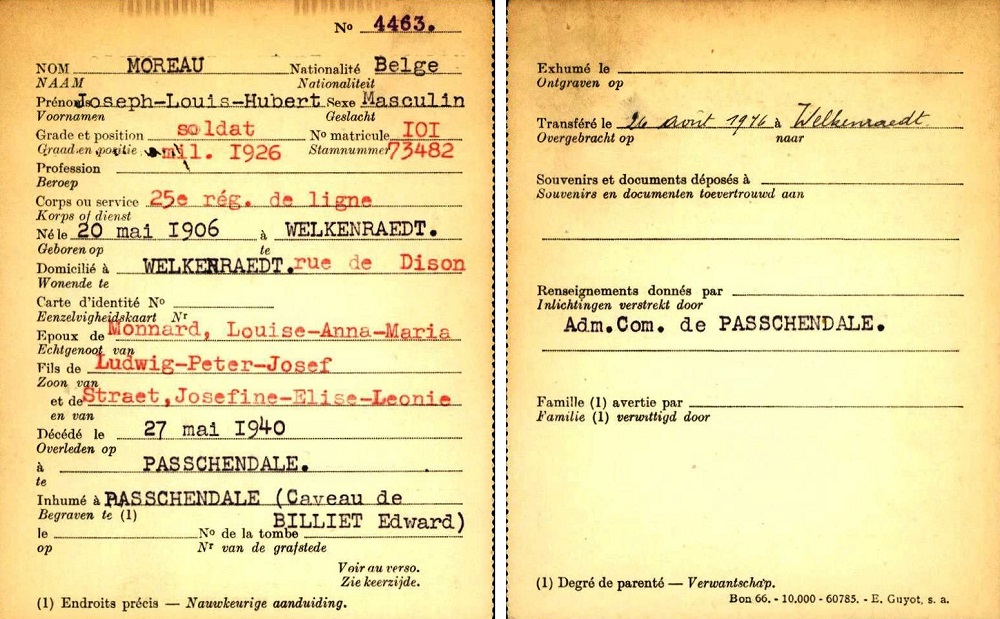 No 4463.
NOM MOREAU Nationalité Belge
NAAM Nationaliteit
Prénoms Joseph-Louis-Hubert Sexe Masculin
Voornamen Geslacht
Grade et position soldat No matricule IOI
Graad en positie mil. I926 Stamnummer 73482
Profession
Beroep
Corps ou service 25e rég. de ligne
Korps of dienst
Né le 20 mai I906 à WELKENRAEDT.
Geboren op te
Domicilié à WELKENRAEDT. rue de Dison
Wonende te
Carte d'identité No
Eenzelvigheidskaart Nr
Epoux de Monnard, Louise-Anna-Maria
Echtgenoot van
Fils de Ludwig-Peter-Josef
Zoon van
et de Straet, Josefine-Elise-Leonie
en van
Décédé le 27 mai I940
Overleden op
à PASSCHENDALE.
te
Inhumé à PASSCHENDALE (Caveau de
Begraven te (1) BILLIET Edward)
le No de la tombe
op Nr van de grafstede
Voir au verso.
Zie keerzijde.
(1) Endroits précis — Nauwkeurige aanduiding.
Exhumé le
Ontgraven op
Transféré le 26 août 1976 à Welkenraedt.
Overgebracht op naar
Souvenirs et documents déposés à
Souvenirs en documenten toevertrouwd aan
Renseignements donnés par
Inlichtingen verstrekt door
Adm.Com. de PASSCHENDALE.
Famille (1) avertie par
Familie (1) verwittigd door
(1) Degré de parenté — Verwantschap.
Bon 66. - 10.000 - 60785. - E. Guyot, s. a.